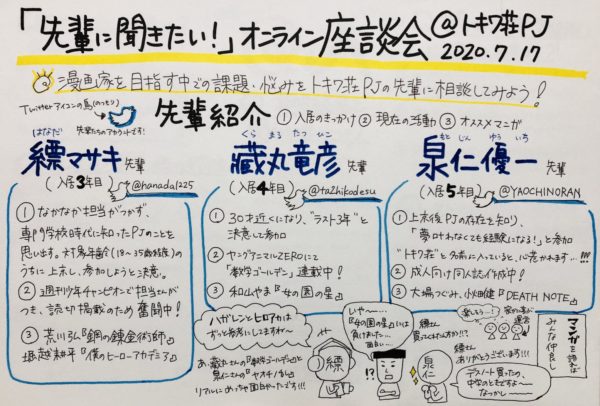 「先輩に聞きたい!」オンライン座談会@トキワ荘PJ
2020.7.17
漫画家を目指す中での課題・悩みをトキワ荘PJの先輩に相談してみよう!
Twitterアイコンの鳥(のつもり)
先輩たちのアカウントです!
先輩紹介 ①入居のきっかけ ②現在の活動 ③オススメマンガ
はなだ
縹マサキ先輩
(入居3年目)
@hanada1225
①なかなか担当がつかず、
専門学校時代に知ったPJのことを
思います。対象年齢(18〜35歳程度)の
うちに上京し、参加しようと決意。
②週刊少年チャンピオンで担当さんが
つき、読切掲載のため奮闘中!
③荒川弘『鋼の錬金術師』
堀越耕平『僕のヒーローアカデミア』
くら まる たつ ひこ
蔵丸竜彦先輩
(入居4年目)
@ta2hikodesu
①30才近くになり、"ラスト3年"と
決意して参加
②ヤングアニマルZEROにて
「数学ゴールデン」連載中!
③和山やま『女の園の星』
もと じん ゆう いち
泉仁優一先輩
(入居5年目)
@YAOCHINORAN
①上京後PJの存在を知り、
「夢叶わなくても経験になる!」と参加
"トキワ荘"と名前に入っていると、心惹かれます…!!!
②成人向け同人誌作成中!
③大場つぐみ、小畑健『DEATH NOTE』
ハガレンとヒロアカは
ずっと参考にしてますね〜
あ、蔵丸さんの『数学ゴールデン』と
泉仁さんの『ヤオチノ乱』
リアルにめっちゃ面白かったです!!!
縹
いや〜…
『女の園の星』には
負けました…
面白い…
!?
縹さん
買ってくれたんすか!?
縹さん
ありがとうございます!!!
泉仁
デスノート買ったの、
中学のときですよ〜
なつかし〜
楽しそう!
マンガを語れば
みんな仲良し